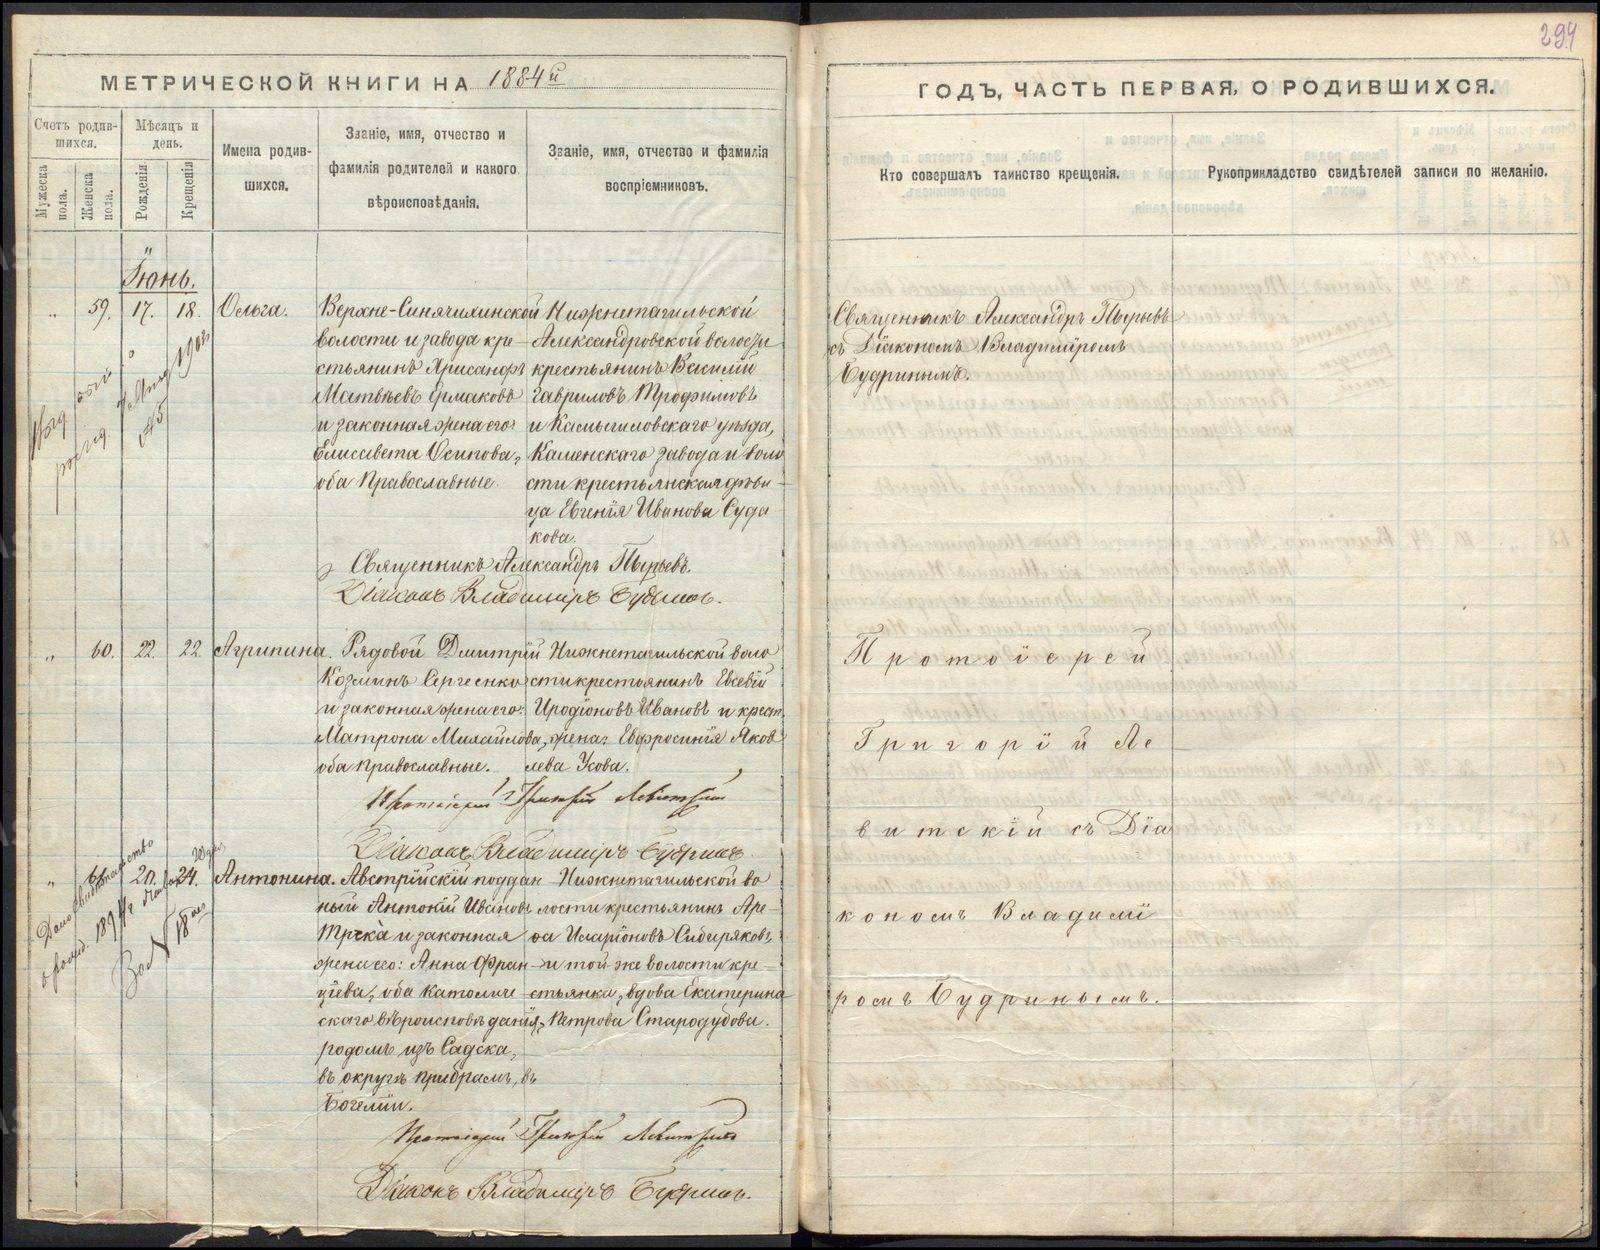 294
МЕТРИЧЕСКОЙ КНИГИ НА 1884й
ГОДЪ, ЧАСТЬ ПЕРВАЯ, О РОДИВШИХСЯ.
Счетъ родив-
шихся.
Мужеска пола.
Женска пола.
Мѣсяцъ и
день.
Рожденія
Крещенія
Имена родив-
шихся.
Званіе, имя, отчество и
фамилія родителей и какого
вѣроисповѣданія.
Званіе, имя, отчество и фамилія
воспріемниковъ.
Кто совершалъ таинство крещенія.
Рукоприкладство свидѣтелей записи по желанію.
Іюнь.
„ 59. 17. 18. Ольга.
Верхне-Синячихинской
волости и завода кре-
стьянинъ Хрисанфъ
Матвѣевъ Ермаковъ
и законная жена его:
Елисавета Осипова,
оба Православные.
Нижнетагильской
Александровской волости
крестьянинъ Василій
Гавриловъ Трофимовъ
и Камышловскаго уѣзда,
Каменскаго завода и воло
сти крестьянская дѣви-
ца Евгенія Иванова Суда
кова.
Священникъ Александръ Пырьевъ.
Діаконъ Владиміръ Будринъ.
Священникъ Александръ Пырьевъ
съ Діакономъ Владиміромъ
Будринымъ.
„ 60. 22. 22. Агрипина.
Рядовой Дмитрій
Козминъ Сергеенко
и законная жена его:
Матрона Михаилова,
оба православные.
Нижнетагильской воло
сти крестьянинъ Евсевій
Иродіоновъ Ивановъ и крест.
жена: Евфросинія Яков
лева Усова.
Протоіерей Григорій Левитскій
Діаконъ Владиміръ Будринъ.
Протоіерей
Григорій Ле
витскій съ Діа
кономъ Владимі
ромъ Будринымъ.
„ 61. 20. 24. Антонина.
Австрійскій поддан
ный Антоній Ивановъ
Трска и законная
жена его: Анна Фран-
ціева, оба католиче
скаго вѣроисповѣданія,
родомъ изъ Садска,
въ округѣ Прибрамъ, въ
Богеміи.
Нижнетагильской во
лости крестьянинъ Аре-
фа Иларіоновъ Сибиряковъ
и той-же волости кре-
стьянка, вдова Екатерина
Петрова Стародубова.
Протоіерей Григорій Левитскій
Діаконъ Владиміръ Будринъ.